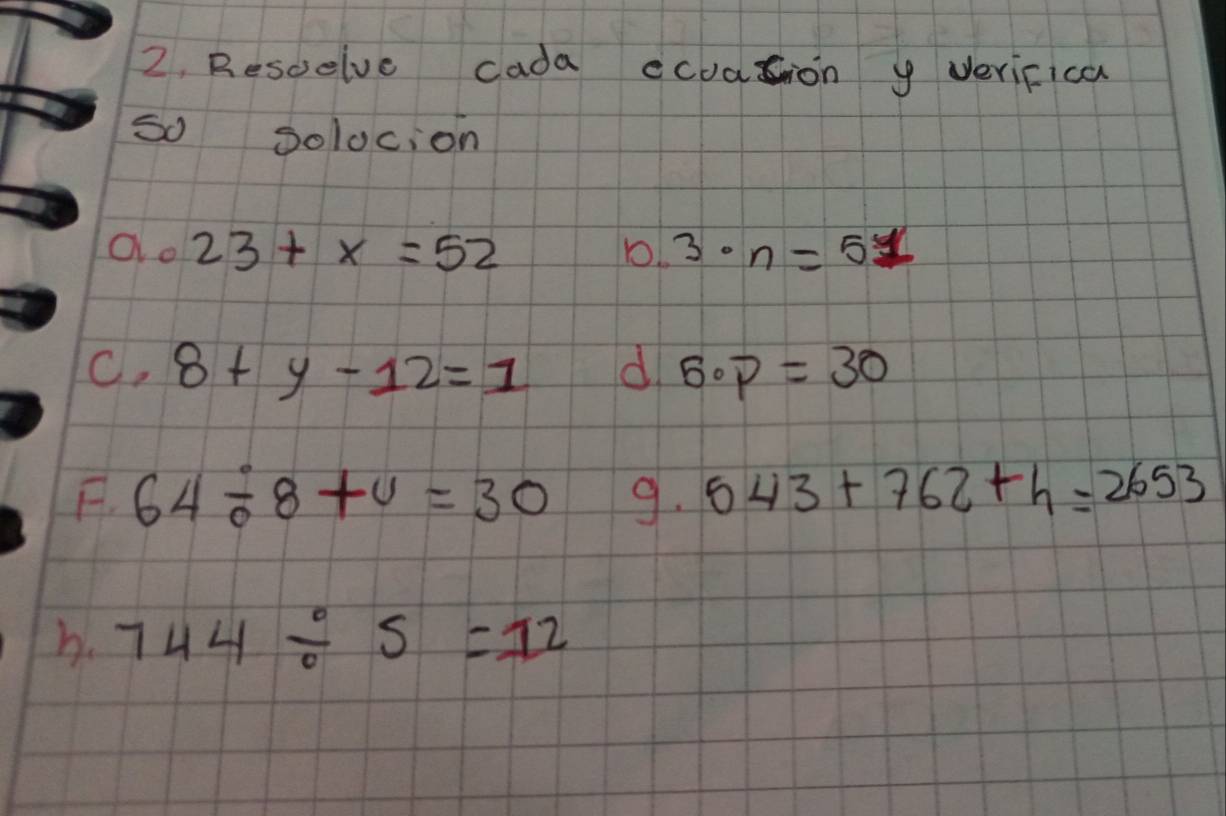 2. Resuelve cada ecuación y verifica
su solución
a. 23 + x = 52 b. 3 · n = 51
c. 8 + y - 12 = 1 d. 5 · p = 30
F. 64 ÷ 8 + u = 30 g. 543 + 762 + h = 2653
h. 744 ÷ s = 12